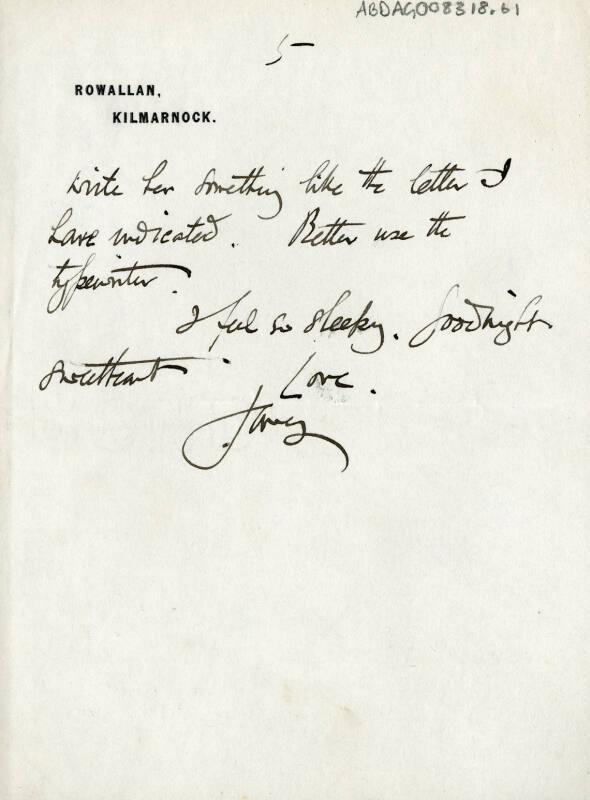 ABDAG008318.61
5
ROWALLAN,
KILMARNOCK.
Write her something like the letter I
have indicated. Better use the
typewriter.
I feel so sleepy. Goodnight
sweetheart. Love.
James